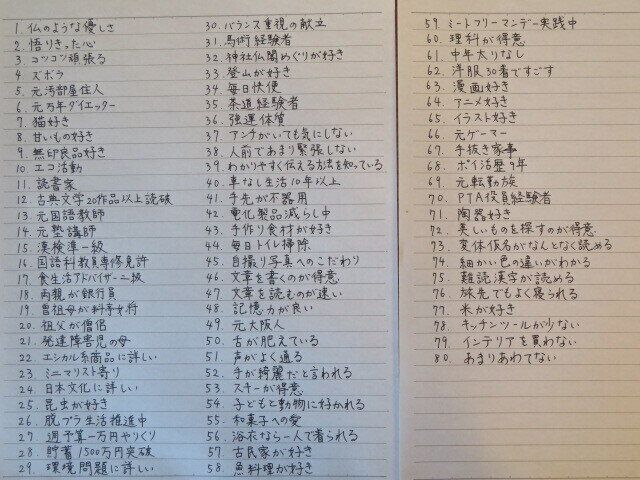 1. 仏のような優しさ
2. 悟りきった心
3. コツコツ頑張る
4. ズボラ
5. 元汚部屋住人
6. 元万年ダイエッター
7. 猫好き
8. 甘いもの好き
9. 無印良品好き
10. エコ活動
11. 読書家
12. 古典文学20作品以上読破
13. 元国語教師
14. 元塾講師
15. 漢検準一級
16. 国語科教員専修免許
17. 食生活アドバイザー二級
18. 両親が銀行員
19. 曽祖母が料亭女将
20. 祖父が僧侶
21. 発達障害児の母
22. エシカル系商品に詳しい
23. ミニマリスト寄り
24. 日本文化に詳しい
25. 昆虫が好き
26. 脱プラ生活推進中
27. 週予算一万円やりくり
28. 貯蓄1500万円突破
29. 環境問題に詳しい
30. バランス重視の献立
31. 馬術経験者
32. 神社仏閣めぐりが好き
33. 登山が好き
34. 毎日快便
35. 茶道経験者
36. 強運体質
37. アンチがいても気にしない
38. 人前であまり緊張しない
39. わかりやすく伝える方法を知っている
40. 車なし生活10年以上
41. 手先が不器用
42. 電化製品減らし中
43. 手作り食材が好き
44. 毎日トイレ掃除
45. 自撮り写真へのこだわり
46. 文章を書くのが得意
47. 文章を読むのが速い
48. 記憶力が良い
49. 元大阪人
50. 舌が肥えている
51. 声がよく通る
52. 手が綺麗だと言われる
53. スキーが得意
54. 子どもと動物に好かれる
55. 和菓子への愛
56. 浴衣なら一人で着られる
57. 古民家が好き
58. 魚料理が好き
59. ミートフリーマンデー実践中
60. 理科が得意
61. 中年太りなし
62. 洋服30着ですごす
63. 漫画好き
64. アニメ好き
65. イラスト好き
66. 元ゲーマー
67. 手抜き家事
68. ポイ活歴9年
69. 元転勤族
70. PTA役員経験者
71. 陶器好き
72. 美しいものを探すのが得意
73. 変体仮名がなんとなく読める
74. 細かい色の違いがわかる
75. 難読漢字が読める
76. 旅先でもよく寝られる
77. 米が好き
78. キッチンツールが少ない
79. インテリアを買わない
80. あまりあわてない